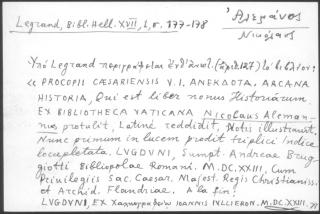 Legrand, Bibl. Hell. XVII, 1, σ. 177-178
Ἀλεμάνος
Νικόλαος
Ὑπὸ Legrand περιγράφεται ἐνθ' ἀνωτ. τὸ βιβλίον:
« PROCOPII CÆSARIENSIS V.I. ANEKΔOTA. ARCANA
HISTORIA, Qui est liber nonus Historiarum.
EX BIBLIOTHECA VATICANA Nicolaus Aleman-
nus protulit, Latine reddidit, Notis illustravit.
Nunc primum in lucem prodit triplici indice
locupletata. LVGDVNI, Sumpt. Andreae Brug-
giotti Bibliopolae Romani. M.DC.XXIII, Cum
Privilegiis Sac. Caesar. Majest. Regis Christianiss.
et Archid. Flandriae. A la fin:
LVGDVNI, EX IOANNIS IVLLIERON. M.DC.XXIII. »